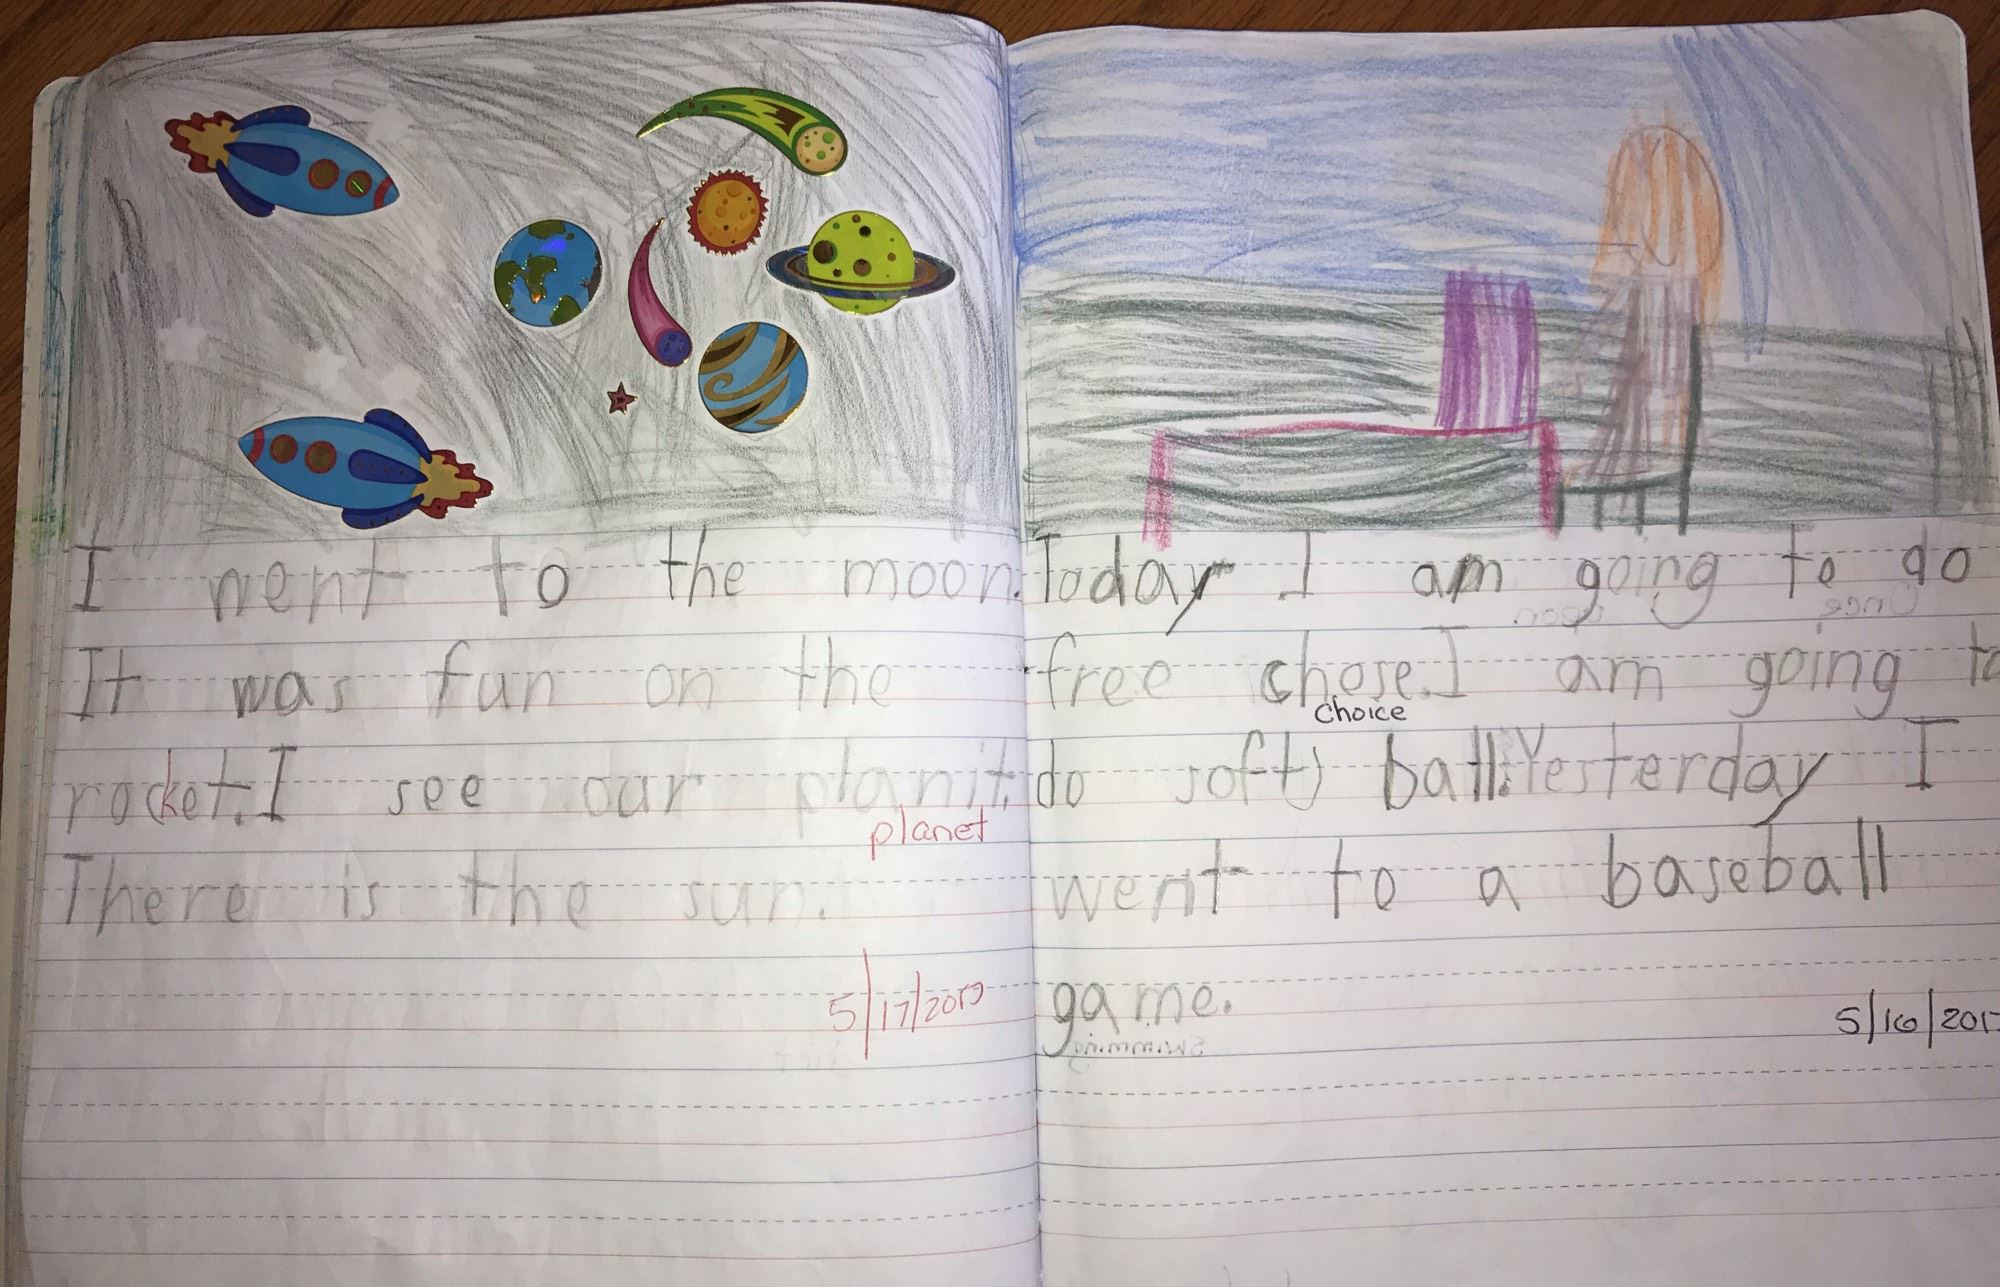 I went to the moon.
It was fun on the
rocket. I see our planit.
planet
There is the sun.
5/17/2017
Today I am going to do
free chose. I am going to
choice
do soft ball. Yesterday I
went to a baseball
game.
5/16/201